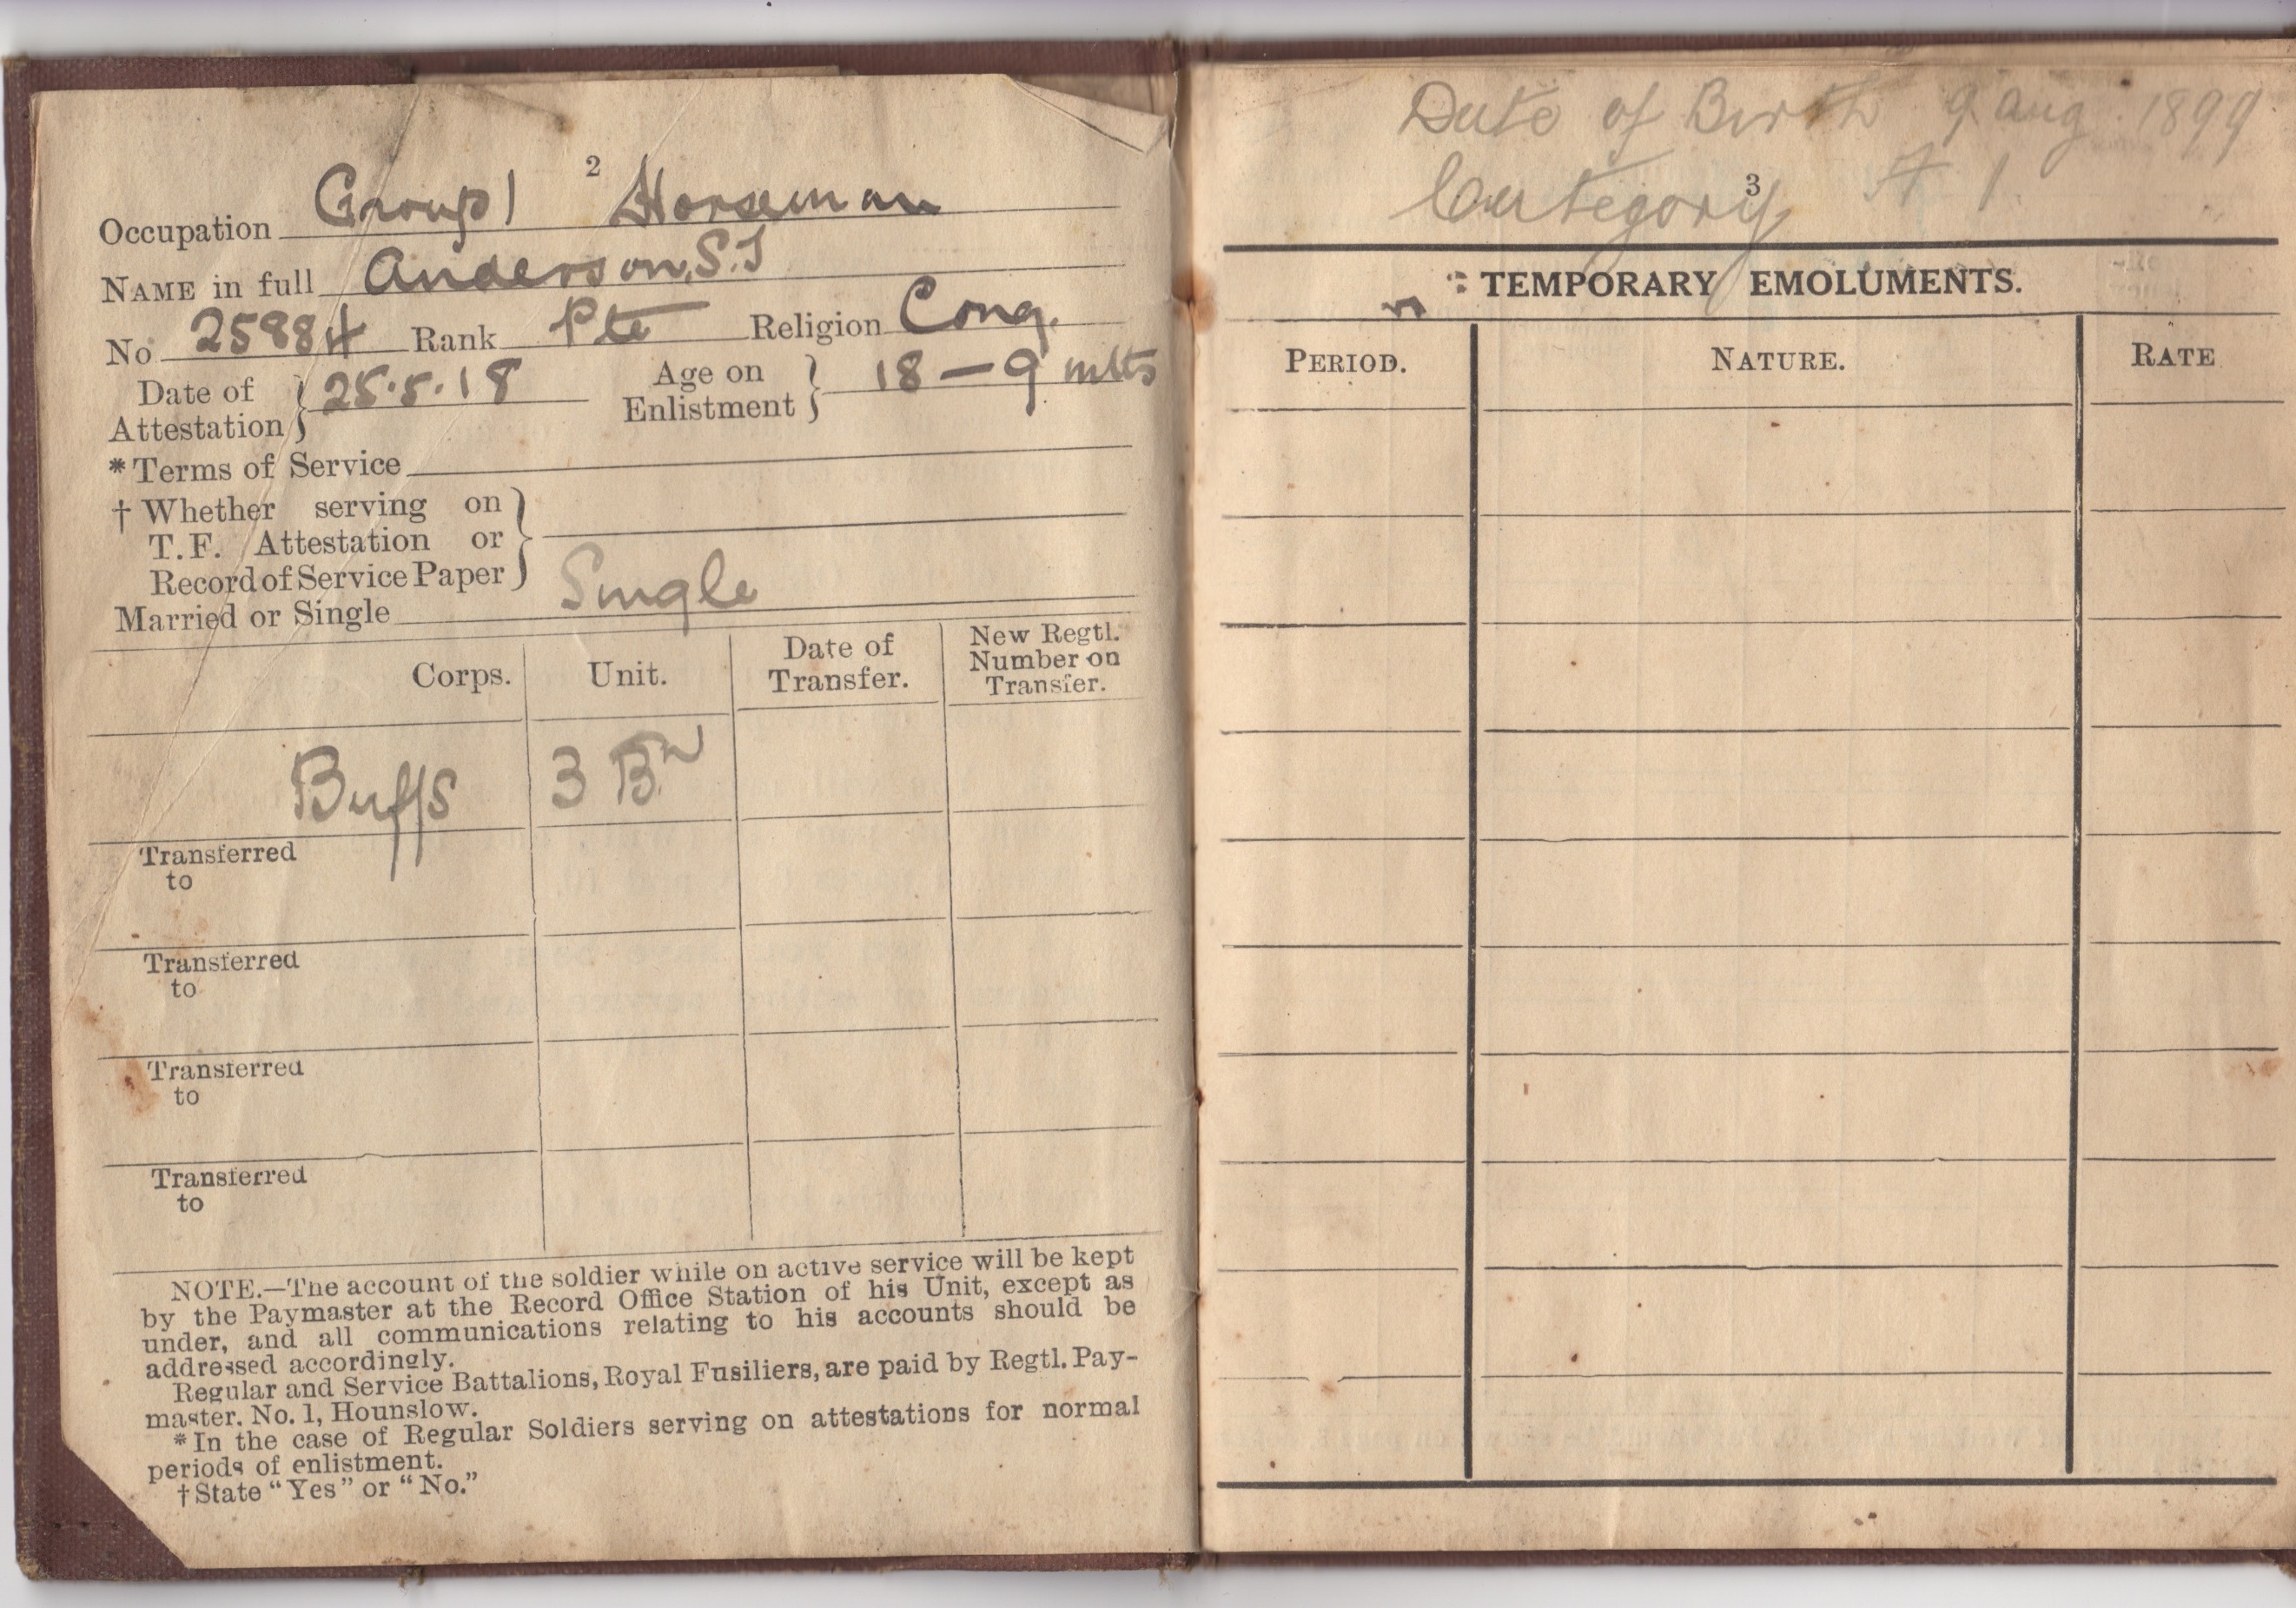 2
Occupation Group 1 Horseman
NAME in full Anderson, S.J
No 25884 Rank Pte Religion Cong.
Date of Attestation } 25.5.18 Age on Enlistment } 18 — 9 mths
* Terms of Service
† Whether serving on
T.F. Attestation or
Record of Service Paper }
Married or Single Single
Corps. Unit. Date of Transfer. New Regtl. Number on Transfer.
Buffs 3 Bn
Transferred
to
Transferred
to
Transferred
to
Transferred
to
NOTE.—The account of the soldier while on active service will be kept
by the Paymaster at the Record Office Station of his Unit, except as
under, and all communications relating to his accounts should be
addressed accordingly.
Regular and Service Battalions, Royal Fusiliers, are paid by Regtl. Pay-
master, No. 1, Hounslow.
*In the case of Regular Soldiers serving on attestations for normal
periods of enlistment.
†State "Yes" or "No."
Date of Birth 9 Aug. 1899
Category A 1
3
TEMPORARY EMOLUMENTS.
PERIOD. NATURE. RATE